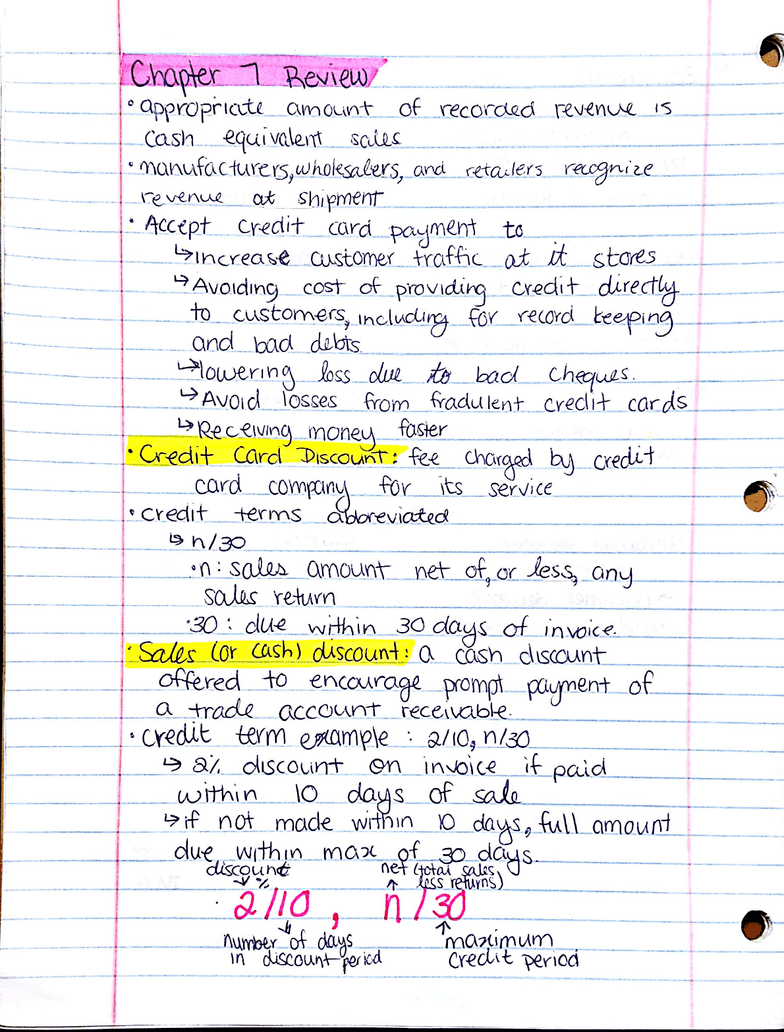 Chapter 7 Review
• appropriate amount of recorded revenue is
cash equivalent sales
• manufacturers, wholesalers, and retailers recognize
revenue at shipment
• Accept credit card payment to
↳ Increase customer traffic at it stores
↳ Avoiding cost of providing credit directly
to customers, including for record keeping
and bad debts
↳ lowering loss due to bad cheques.
↳ Avoid losses from fradulent credit cards
↳ Receiving money faster
• Credit Card Discount: fee charged by credit
card company for its service
• credit terms abbreviated
↳ n/30
• n: sales amount net of, or less, any
sales return
• 30: due within 30 days of invoice.
• Sales (or cash) discount: a cash discount
offered to encourage prompt payment of
a trade account receivable.
• credit term example: 2/10, n/30
↳ 2% discount on invoice if paid
within 10 days of sale
↳ if not made within 10 days, full amount
due within max of 30 days.
discount %
net (total sales
less returns)
• 2/10, n/30
number of days
in discount period
maximum
credit period